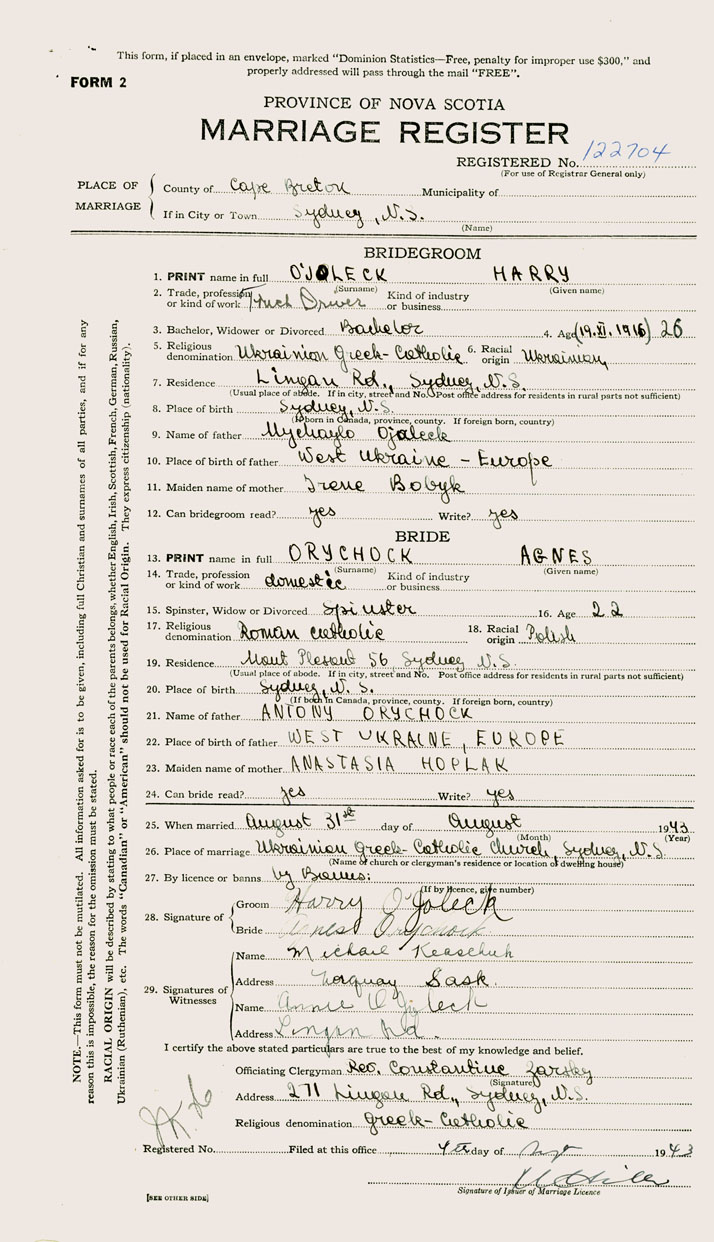 This form, if placed in an envelope, marked "Dominion Statistics—Free, penalty for improper use $300," and
properly addressed will pass through the mail "FREE".
FORM 2
PROVINCE OF NOVA SCOTIA
MARRIAGE REGISTER
REGISTERED No. 122704
(For use of Registrar General only)
PLACE OF MARRIAGE
County of Cape Breton Municipality of
If in City or Town Sydney, N.S.
(Name)
BRIDEGROOM
1. PRINT name in full O'JOLECK HARRY
(Surname) (Given name)
2. Trade, profession or kind of work Truck Driver Kind of industry or business
3. Bachelor, Widower or Divorced Bachelor 4. Age (19.XI.1916) 26
5. Religious denomination Ukrainian Greek-Catholic 6. Racial origin Ukrainian
7. Residence Lingan Rd., Sydney, N.S.
(Usual place of abode. If in city, street and No. Post office address for residents in rural parts not sufficient)
8. Place of birth Sydney, N.S.
(If born in Canada, province, county. If foreign born, country)
9. Name of father Mychaylo Ojoleck
10. Place of birth of father West Ukraine - Europe
11. Maiden name of mother Irene Bobyk
12. Can bridegroom read? yes Write? yes
BRIDE
13. PRINT name in full ORYCHOCK AGNES
(Surname) (Given name)
14. Trade, profession or kind of work domestic Kind of industry or business
15. Spinster, Widow or Divorced Spinster 16. Age 22
17. Religious denomination Roman Catholic 18. Racial origin Polish
19. Residence Mount Plesant 56, Sydney N.S.
(Usual place of abode. If in city, street and No. Post office address for residents in rural parts not sufficient)
20. Place of birth Sydney, N.S.
(If born in Canada, province, county. If foreign born, country)
21. Name of father ANTONY ORYCHOCK
22. Place of birth of father WEST UKRAINE, EUROPE
23. Maiden name of mother ANASTASIA HOPLAK
24. Can bride read? yes Write? yes
25. When married August 31st day of August 1943
(Month) (Year)
26. Place of marriage Ukrainian Greek-Catholic Church, Sydney, N.S.
(Name of church or clergyman's residence or location of dwelling house)
27. By licence or banns by Banns:
(If by licence, give number)
28. Signature of
Groom Harry O'Joleck
Bride Agnes Orychock
29. Signatures of Witnesses
Name Michael
Address Torquay Sask.
Name Annie O'Joleck
Address Lingan Rd.
I certify the above stated particulars are true to the best of my knowledge and belief.
Officiating Clergyman Rev. Constantine Zarsky
(Signature)
Address 271 Lingan Rd., Sydney, N.S.
Religious denomination Greek-Catholic
Registered No. Filed at this office 4th day of 1943
Signature of Issuer of Marriage Licence
[SEE OTHER SIDE]
NOTE.—This form must not be mutilated. All information asked for is to be given, including full Christian and surnames of all parties, and if for any
reason this is impossible, the reason for the omission must be stated.
RACIAL ORIGIN will be described by stating to what people or race each of the parents belongs, whether English, Irish, Scottish, French, German, Russian,
Ukrainian (Ruthenian), etc. The words "Canadian" or "American" should not be used for Racial Origin. They express citizenship (nationality).